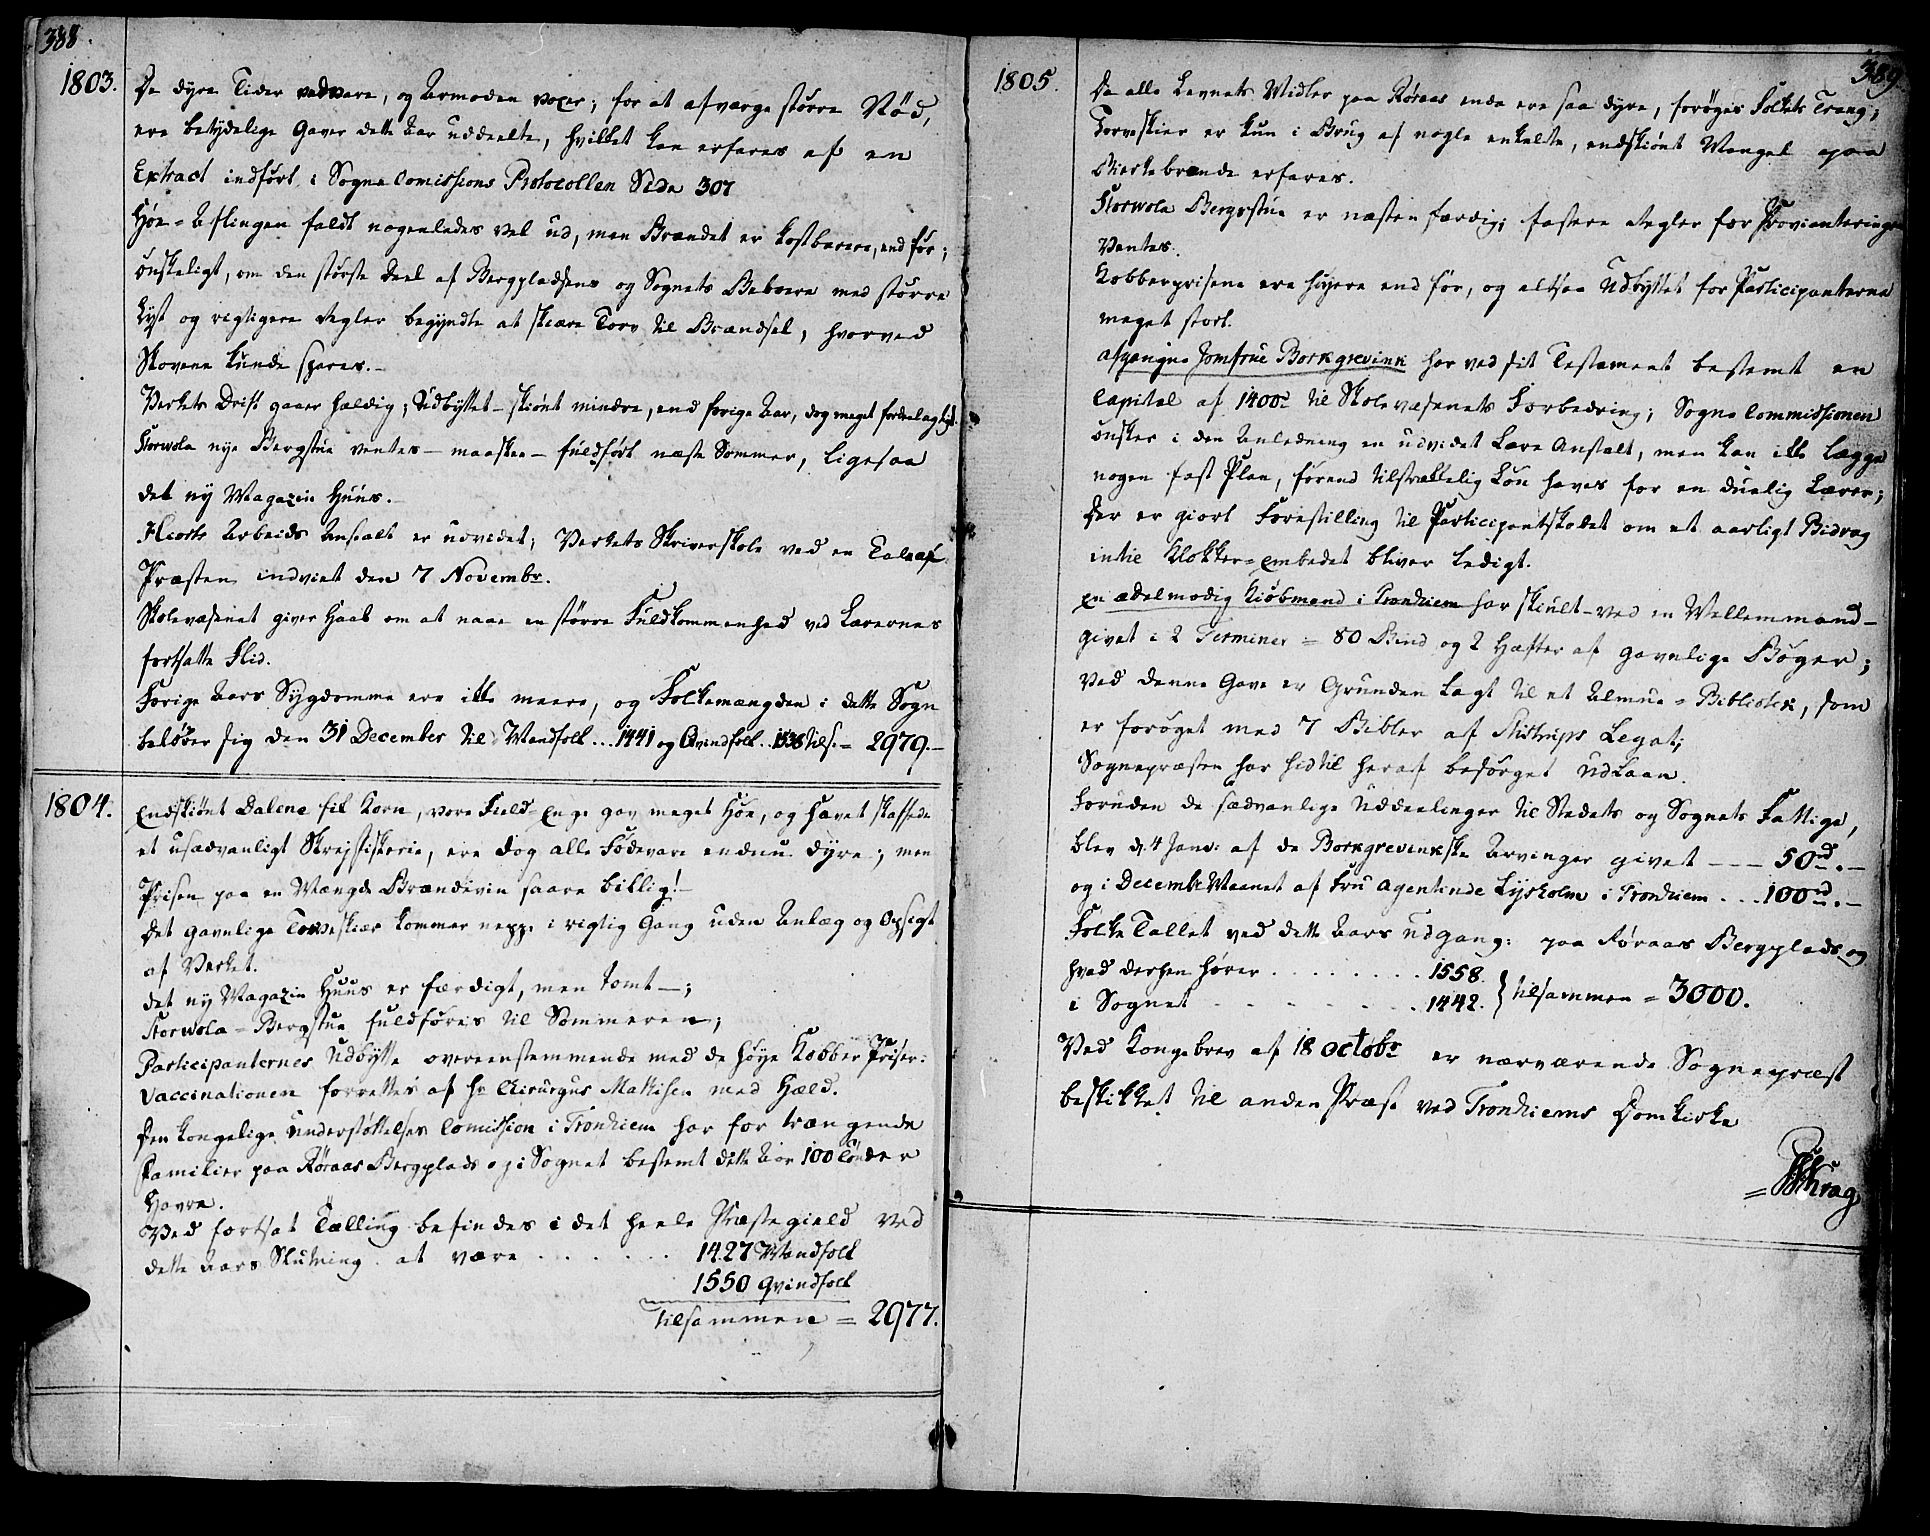 388.
1803.
De dyre Tider vedvare, og Armoden voxer; for at afværge større Nød,
ere betydelige Gaver dette Aar uddeelte, hvilket kan erfares af en
Extract indført i Sogne Comissions Protocollen Side 307
Høe-Aflingen faldt nogenledes vel ud, men Brændet er kostbarere, end før;
ønskeligt, om den største Deel af Bergpladsens og Sognets Beboere med større
Lyst og rigtigere Regler begyndte at skiære Torv til Brændsel, hvorved
Skovene kunde spares.-
Verkets Drift gaaer heldig; Udbyttet - skiønt mindre, end forige Aar, dog meget fordelagtigt.
Storwola nye Bergstue ventes - maaskee - fuldført næste Sommer, ligesaa
det ny Magazin Huus.-
Hiorts Arbeids Anstalt er udvidet; Verkets Skriverskole ved en Tale af
Præsten indviet den 7 Novembr.
Skolevæsenet giver Haab om at naae en større Fuldkommenhed ved Lærernes
fortsatte Flid.
Forige Aars Sygdomme ere ikke meere, og Folkemængden i dette Sogn
beløber sig den 31 December til Mandfolk ... 1441 og Qvindfolk .. 1538 tils. = 2979.-
1804.
Endskiønt Dalene fik Korn, vore Field-Enge gav meget Høe, og Havet skaffede
et usædvanligt Skrejfiskerie, ere dog alle Fødevare endnu dyre; men
Prisen paa en Mængde Brændeviin saare billig!-
Det gavnlige Torveskiær kommer neppe i rigtig Gang uden Anlæg og Opsigt
af Verket.
det ny Magazin Huus er færdigt, men tomt-;
Storwola-Bergstue fuldføres til Sommeren;
Participanternes Udbytte overeenstemmende med de høye Kobber Priser:
Vaccinationen forrettes af Hr Chirurgus Mathisen med Held.
Den kongelige Understøttelses Comission i Tronhiem har for trængende
Familier paa Røraas Bergplads og i Sognet bestemt dette Aar 100 Tønder
Havre.
Ved fortsat Tælling befindes i det heele Præstegield ved
dette Aars Slutning at være . . . . . . 1427 Mandfolk
1550 Qvindfolk
tilsammen = 2977.
389.
1805.
Da alle Levnets Midler paa Røraas ende ere saa dyre, forøges Folkets Trang;
Torveskiær er kun i Brug af nogle enkelte, endskiønt Mangel paa
Birkebrænde erfares.
Storwola Bergstue er næsten færdig; fastere Regler for Provianteringen
Ventes.
Kobberprisene ere høyere end før, og altsaa Udbyttet for Participanterne
meget stort.
afgangne Jomfrue Borkgrevink har ved sit Testament bestemt en
Capital af 1400rd til Skolevæsenets Forbedring; Sogne Commissionen
ønsker i den Anledning en udvidet Lære Anstalt, men kan ikke lægge
nogen fast Plan, førend tilstrækkelig Løn haves for en duelig Lærer;
Der er giort Forestilling til Participantskabet om et aarligt Bidrag
intil Klokker-Embedet bliver ledigt.
En ædelmodig Kiøbmand i Tronhiem har skiult - ved en Mellemmand -
givet i 2 Terminer = 80 Bind og 2 Hæfter af gavnlige Bøger;
Ved denne Gave er Grunden lagt til et Almue-Bibliotek, som
er forøget med 7 Bibler af Stistrups Legat;
Sognepræsten har hidtil heraf besørget Udlaan.
Foruden de sædvanlige Uddeelinger til Stedets og Sognets Fattige,
blev d. 4 Janv: af de Borkgrevinkske Arvinger givet --- 50rd.-
og i Decembr Maanet af Fru Agentinde Lysholm i Tronhiem ... 100rd.-
Folke Tallet ved dette Aars Udgang: paa Røraas Bergplads og
hvad derhen hører . . . . . . . . 1558.
i Sognet - - - - - - - - 1442. } tilsammen = 3000.
Ved Kongebrev af 18 octobr er nærværende Sognepræst
beskikket til anden Præst ved Tronhiems Domkirke
= Krag